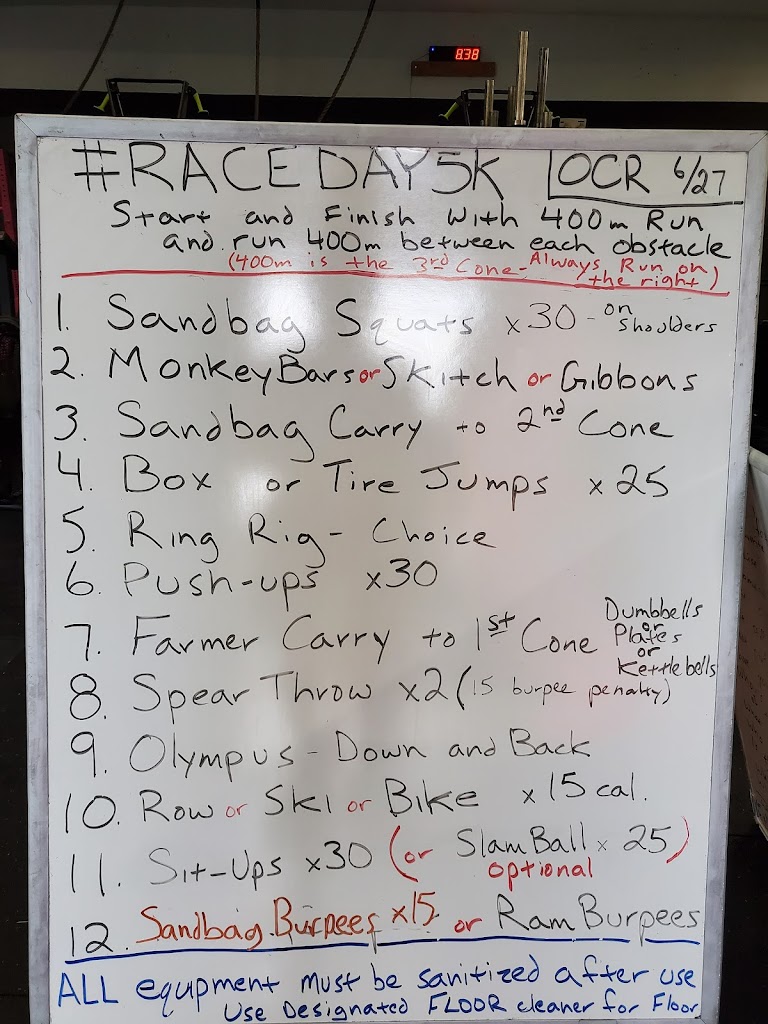 8:38
#RACEDAY5K OCR 6/27
Start and Finish with 400m Run
and run 400m between each obstacle
(400m is the 3rd Cone - Always Run on the right)
1. Sandbag Squats x30 - on shoulders
2. Monkey Bars or Skitch or Gibbons
3. Sandbag Carry to 2nd Cone
4. Box or Tire Jumps x 25
5. Ring Rig - Choice
6. Push-ups x30
7. Farmer Carry to 1st Cone Dumbbells or Plates or Kettlebells
8. Spear Throw x2 (15 burpee penalty)
9. Olympus - Down and Back
10. Row or Ski or Bike x 15 cal.
11. Sit-Ups x30 (or Slam Ball x 25) optional
12. Sandbag Burpees x15 or Ram Burpees
ALL equipment must be sanitized after use
Use Designated FLOOR cleaner for Floor